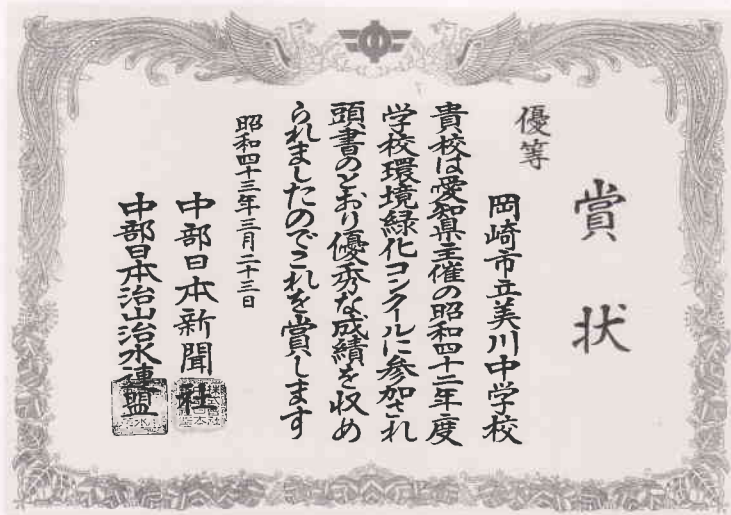 賞状
優等
岡崎市立美川中学校
貴校は愛知県主催の昭和四十二年度
学校環境緑化コンクールに参加され
頭書のとおり優秀な成績を収め
られましたのでこれを賞します
昭和四十三年三月二十三日
中部日本新聞社
中部日本治山治水連盟